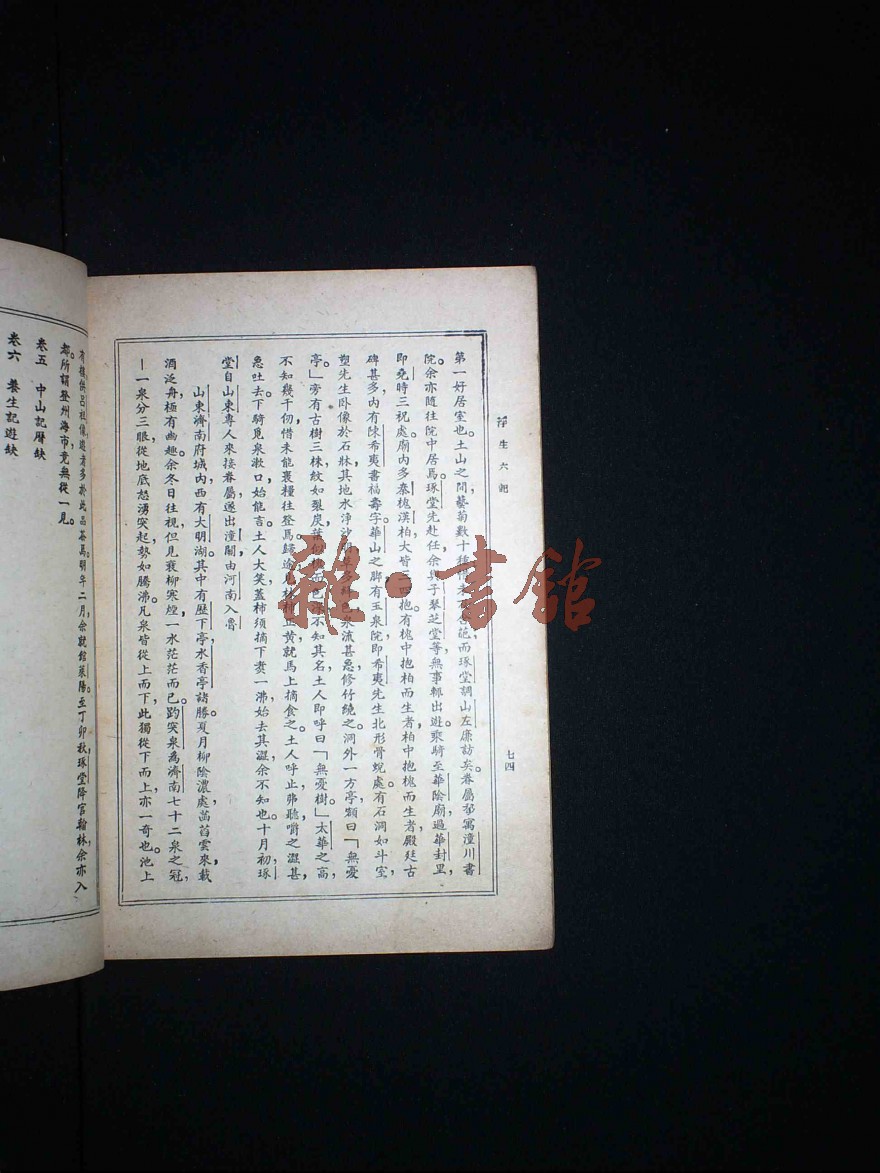 浮生六記
七四
第一好居室也。土山之間，藝菊數十種，而琢堂調山左廉訪矣。眷屬移寓潼川書
院，余亦隨往院中居焉。琢堂先赴任，余與子琴芝堂等無事，輒出遊。乘騎至華陰廟，過華封里，
即堯時三祝處。廟內多秦槐漢柏，大皆抱，有槐中抱柏而生者，柏中抱槐而生者。殿廷古
碑甚多，內有陳希夷書福壽字。華山之脚有玉泉院，即希夷先生化形骨蛻處。有石洞如斗室，
塑先生卧像於石牀。其地水淨沙泉流甚急，修竹繞之。洞外一方亭，額曰「無憂
亭。」旁有古樹三株，紋如裂炭，葉似槐而色深，不知其名，土人即呼曰「無憂樹。」太華之高，
不知幾千仞，惜未能裹糧往登焉。歸途見林柿正黃，就馬上摘食之。土人呼止，弗聽，嚼之澀甚，
急吐去。下騎覓泉漱口，始能言。土人大笑。蓋柿須摘下煑一沸，始去其澀，余不知也。十月初，琢
堂自山東專人來接眷屬，遂出潼關，由河南入魯。
山東濟南府城內，西有大明湖，其中有歷下亭、水香亭諸勝。夏月柳陰濃處，菡萏香來，載
酒泛舟，極有幽趣。余冬日往視，但見衰柳寒煙，一水茫茫而已。趵突泉為濟南七十二泉之冠，
—一泉分三眼，從地底怒湧突起，勢如騰沸。凡泉皆從上而下，此獨從下而上，亦一奇也。池上
有樓，供呂祖像，遊者多於此品茶焉。明年二月，余就館萊陽。至丁卯秋，琢堂降官翰林，余亦入
都。所謂登州海市，竟無從一見。
卷五 中山記曆缺
卷六 養生記逰缺
雜·書館